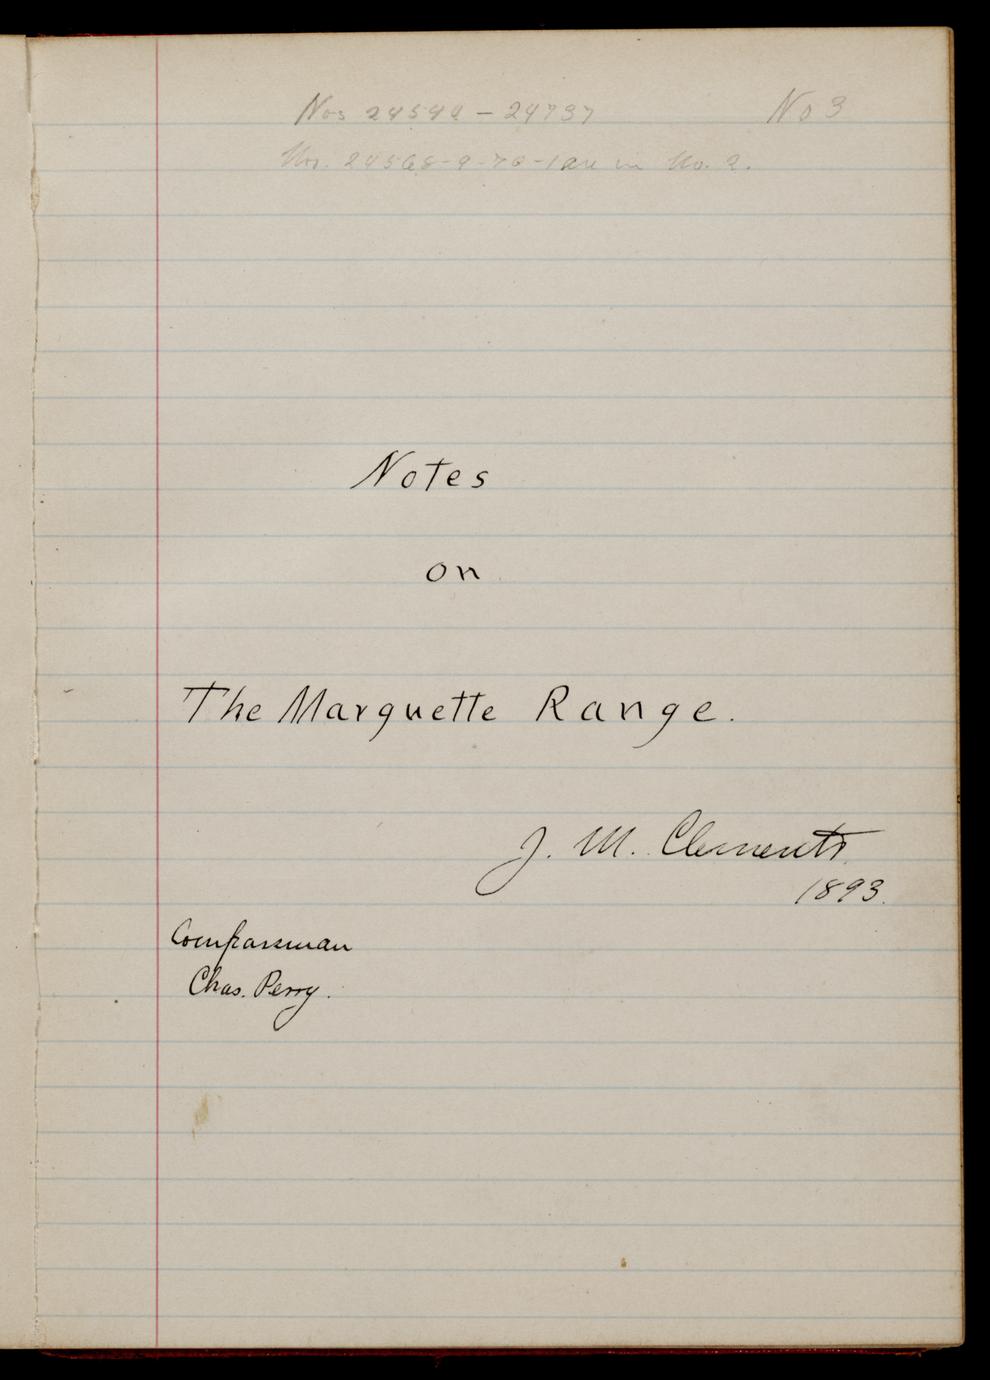 Nos 24544 – 24737 No 3
Nos. 24568-9-70-1 are in No. 2.
Notes
on
The Marquette Range.
J. M. Clements
1893.
Compassman
Chas. Perry.